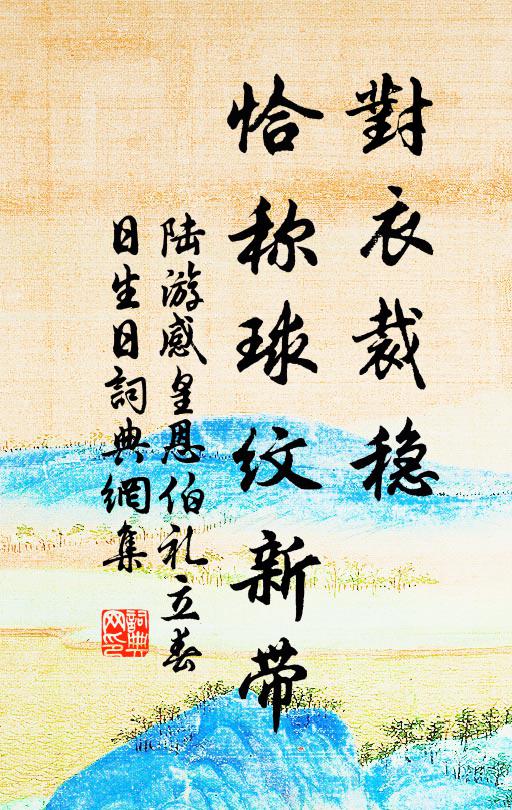 對衣裁稳
恰称球纹新带
陆游感皇恩伯礼立春
日生日詞典網集
詞典
网印